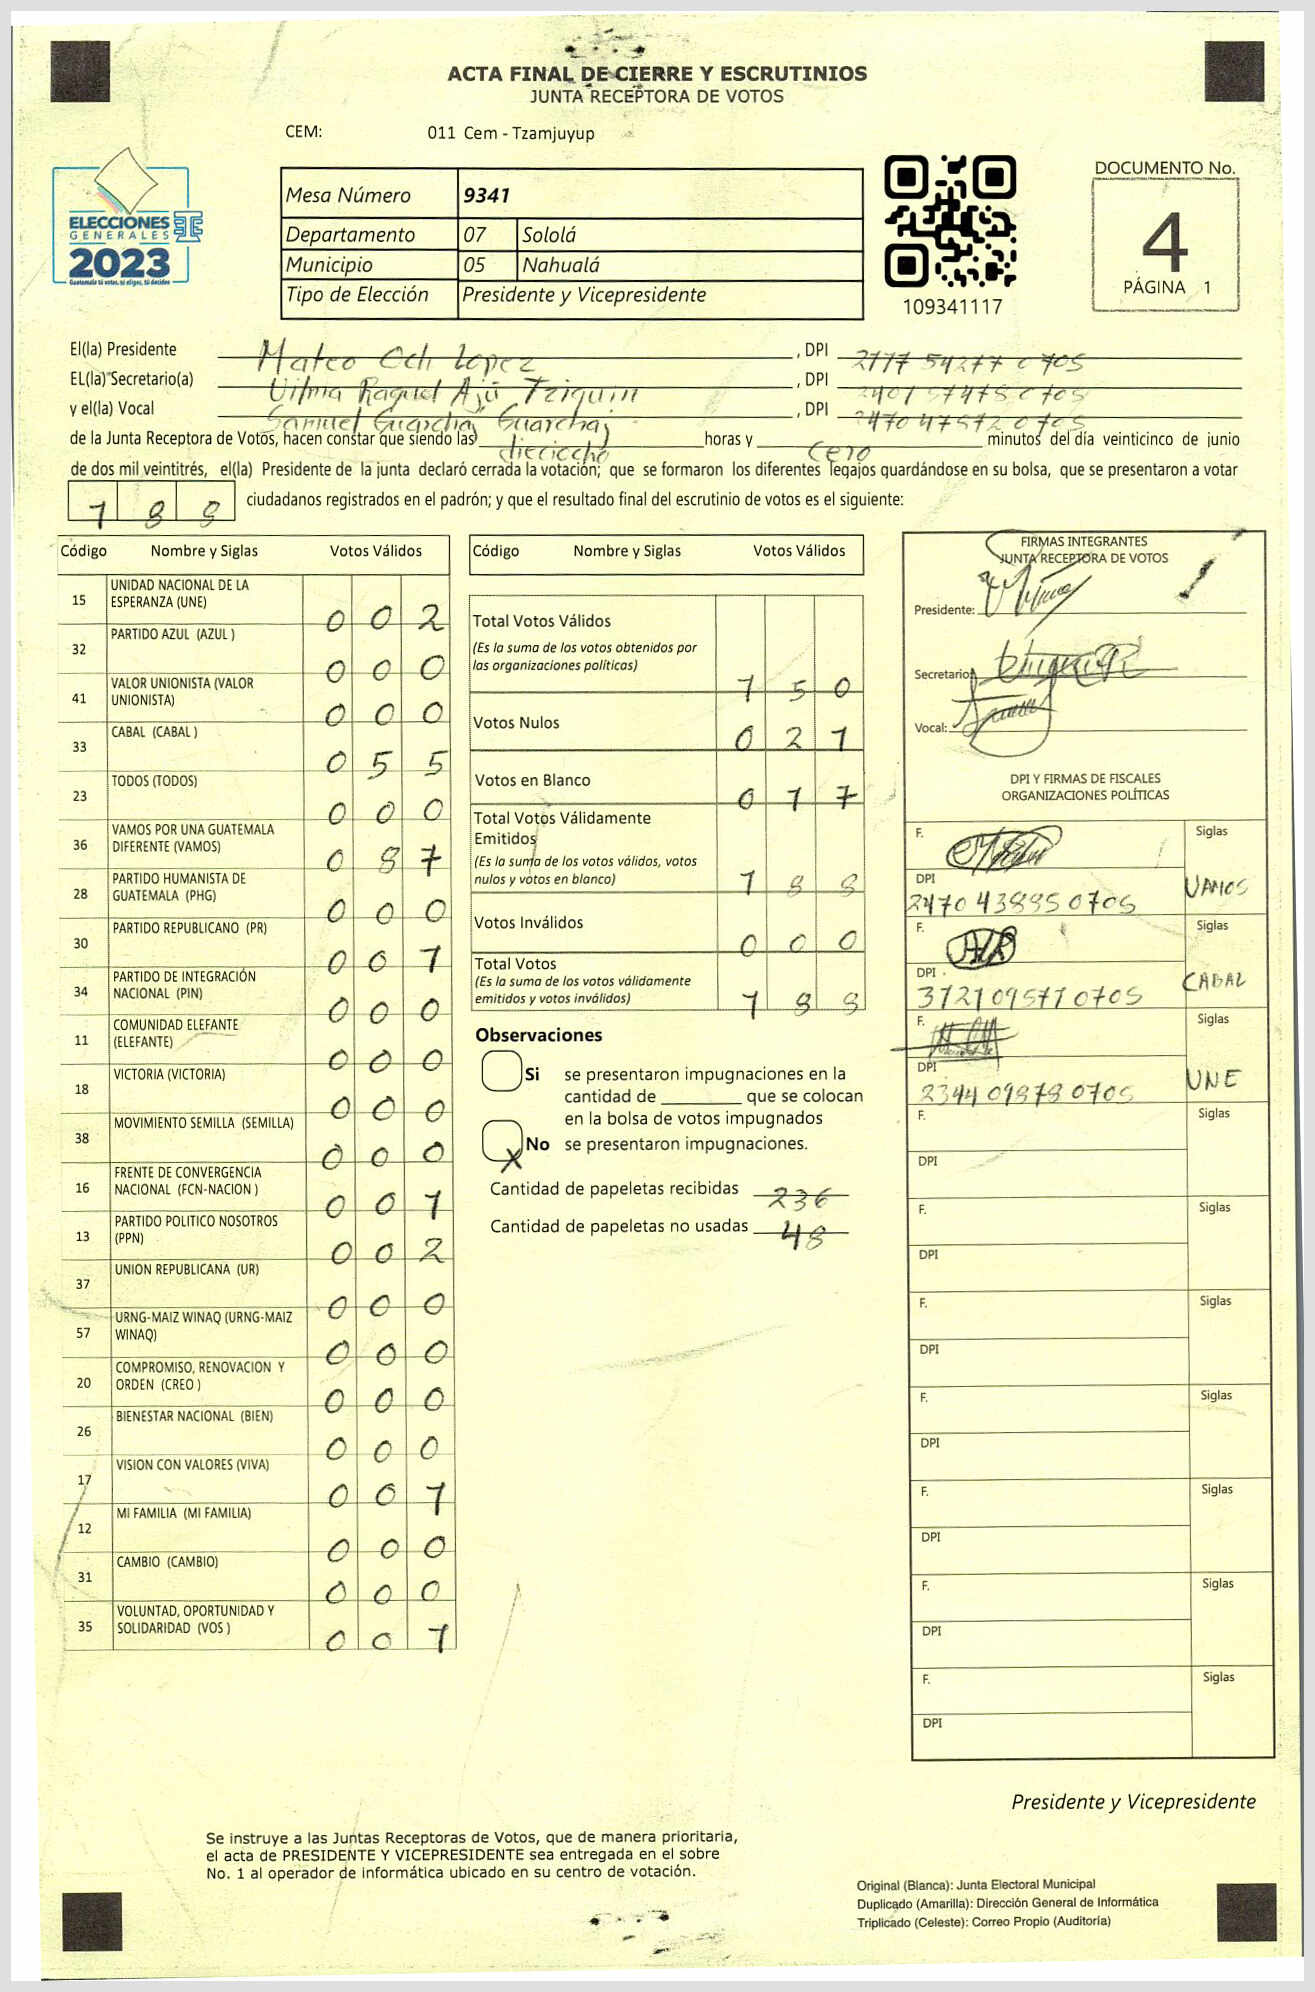 ACTA FINAL DE CIERRE Y ESCRUTINIOS
JUNTA RECEPTORA DE VOTOS
CEM: 011 Cem - Tzamjuyup
ELECCIONES
GENERALES
2023
Guatemala tú votas, tú eliges, tú decides
Mesa Número 9341
Departamento 07 Sololá
Municipio 05 Nahualá
Tipo de Elección Presidente y Vicepresidente
109341117
DOCUMENTO No.
4
PÁGINA 1
El(la) Presidente Mateo Och Lopez, DPI 2177 54277 0705
EL(la) Secretario(a) Vilma Raquel Ajú Tziquin, DPI 0705
y el(la) Vocal Samuel Guarchaj Guarchaj, DPI 2470 47572 0705
de la Junta Receptora de Votos, hacen constar que siendo las dieciocho horas y cero minutos del día veinticinco de junio
de dos mil veintitrés, el(la) Presidente de la junta declaró cerrada la votación; que se formaron los diferentes legajos quardándose en su bolsa, que se presentaron a votar
1 8 8 ciudadanos registrados en el padrón; y que el resultado final del escrutinio de votos es el siguiente:
Código Nombre y Siglas Votos Válidos
15 UNIDAD NACIONAL DE LA ESPERANZA (UNE) 0 0 2
32 PARTIDO AZUL (AZUL ) 0 0 0
41 VALOR UNIONISTA (VALOR UNIONISTA) 0 0 0
33 CABAL (CABAL ) 0 5 5
23 TODOS (TODOS) 0 0 0
36 VAMOS POR UNA GUATEMALA DIFERENTE (VAMOS) 0 8 7
28 PARTIDO HUMANISTA DE GUATEMALA (PHG) 0 0 0
30 PARTIDO REPUBLICANO (PR) 0 0 1
34 PARTIDO DE INTEGRACIÓN NACIONAL (PIN) 0 0 0
11 COMUNIDAD ELEFANTE (ELEFANTE) 0 0 0
18 VICTORIA (VICTORIA) 0 0 0
38 MOVIMIENTO SEMILLA (SEMILLA) 0 0 0
16 FRENTE DE CONVERGENCIA NACIONAL (FCN-NACION ) 0 0 1
13 PARTIDO POLITICO NOSOTROS (PPN) 0 0 2
37 UNION REPUBLICANA (UR) 0 0 0
57 URNG-MAIZ WINAQ (URNG-MAIZ WINAQ) 0 0 0
20 COMPROMISO, RENOVACION Y ORDEN (CREO ) 0 0 0
26 BIENESTAR NACIONAL (BIEN) 0 0 0
17 VISION CON VALORES (VIVA) 0 0 1
12 MI FAMILIA (MI FAMILIA) 0 0 0
31 CAMBIO (CAMBIO) 0 0 0
35 VOLUNTAD, OPORTUNIDAD Y SOLIDARIDAD (VOS ) 0 0 1
Código Nombre y Siglas Votos Válidos
Total Votos Válidos
(Es la suma de los votos obtenidos por
las organizaciones políticas) 1 5 0
Votos Nulos 0 2 1
Votos en Blanco 0 1 7
Total Votos Válidamente
Emitidos
(Es la suma de los votos válidos, votos
nulos y votos en blanco) 1 8 8
Votos Inválidos 0 0 0
Total Votos
(Es la suma de los votos válidamente
emitidos y votos inválidos) 1 8 8
Observaciones
Si se presentaron impugnaciones en la
cantidad de ________ que se colocan
en la bolsa de votos impugnados
X No se presentaron impugnaciones.
Cantidad de papeletas recibidas 236
Cantidad de papeletas no usadas 48
FIRMAS INTEGRANTES
JUNTA RECEPTORA DE VOTOS
Presidente:
Secretario:
Vocal:
DPI Y FIRMAS DE FISCALES
ORGANIZACIONES POLÍTICAS
F. Siglas
DPI VAMOS
2470 43885 0705
F. Siglas
DPI CABAL
3721 09577 0705
F. Siglas
DPI UNE
2344 09878 0705
F. Siglas
DPI
F. Siglas
DPI
F. Siglas
DPI
F. Siglas
DPI
F. Siglas
DPI
F. Siglas
DPI
F. Siglas
DPI
Presidente y Vicepresidente
Se instruye a las Juntas Receptoras de Votos, que de manera prioritaria,
el acta de PRESIDENTE Y VICEPRESIDENTE sea entregada en el sobre
No. 1 al operador de informática ubicado en su centro de votación.
Original (Blanca): Junta Electoral Municipal
Duplicado (Amarilla): Dirección General de Informática
Triplicado (Celeste): Correo Propio (Auditoría)